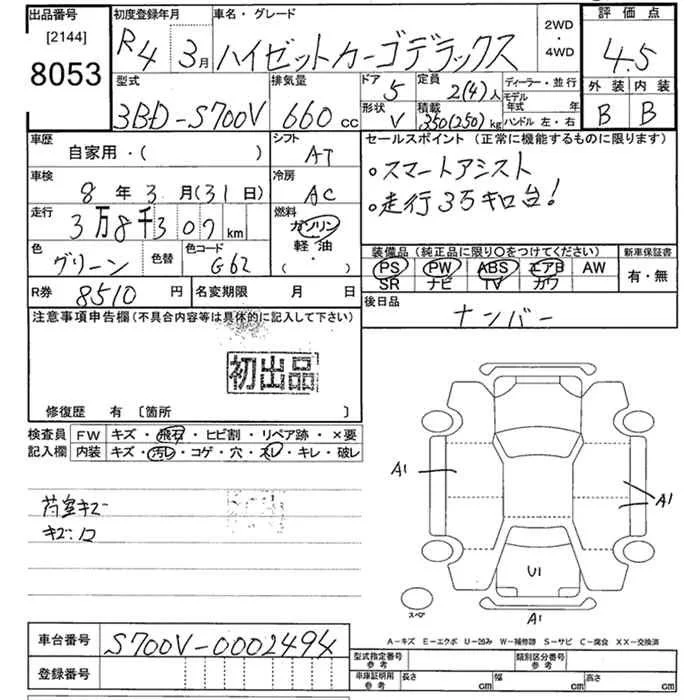 出品番号 初度登録年月 車名・グレード 2WD ・ 4WD 評価点
[2144]
8053
R4 3月 ハイゼットカーゴデラックス 4.5
型式 排気量 ドア 5 定員 2(4)人 ディーラー・並行 外装 内装
3BD-S700V 660cc 形状 V 積載 350(250)kg モデル年式 年 ハンドル 左・右 B B
車歴 シフト セールスポイント (正常に機能するものに限ります)
自家用・( ) AT
車検 冷房 ・スマートアシスト
8年 3月(31日) AC
走行 燃料 ・走行3万キロ台!
3万8千307km ガソリン
軽油
( ・ )
色 色替 色コード 装備品 (純正品に限り〇をつけてください) 新車保証書
グリーン G62 PS PW ABS エアB AW 有・無
SR ナビ TV カワ
R券 8510円 名変期限 月 日 後日品
ナンバー
注意事項申告欄(不具合内容等は具体的に記入して下さい)
初出品
修復歴 有 〔箇所 〕
検査員 FW キズ・飛石・ヒビ割・リペア跡・×要
記入欄 内装 キズ・汚レ・コゲ・穴・スレ・キレ・破レ
A1 A1
A1
荷室キズ
キズ・ワ
U1
スペア
A1
A-キズ E-エクボ U-凹み W-補修跡 S-サビ C-腐食 XX-交換済
車台番号 S700V-0002494
型式指定番号 参考 類別区分番号 参考
登録番号 車庫証明用 参考 長さ cm 幅 cm 高さ cm